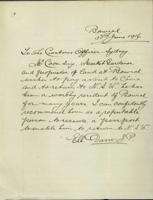 Bowral
June 1916
To the Customs Officer, Sydney
Market Gardener
and proprietor of land at Bowral
wishes to pay a visit to China
and to return to N.S.W. He has
been a working resident of Bowral
for many years. I can confidently
recommend him as a reputable
person to receive a passport
to enable him to return to N.S.W.
Davis J.P.